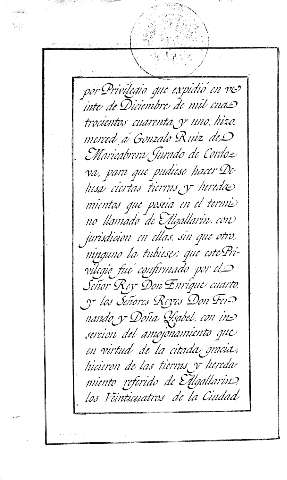 por Privilegio que expidió en ve
inte de Diciembre de mil cua
trocientos cuarenta y uno, hizo
merced á Gonzalo Ruiz de
Maricabrera Jurado de Cordo-
va, para que pudiese hacer De-
hesa ciertas tierras y hereda
mientos que poseia en el termi
no llamado de Algallarin con
jurisdicion en ellas, sin que otro
ninguno la tubiese; que este Pri-
vilegio fue confirmado por el
Señor Rey Don Enrique cuarto
y los Señores Reyes Don Fer-
nando y Doña Ysabel, con in
sercion del amojonamiento que
en virtud de la citada gracia,
hicieron de las tierras y hereda
miento referido de Algallarin
los Veinticuatros de la Ciudad